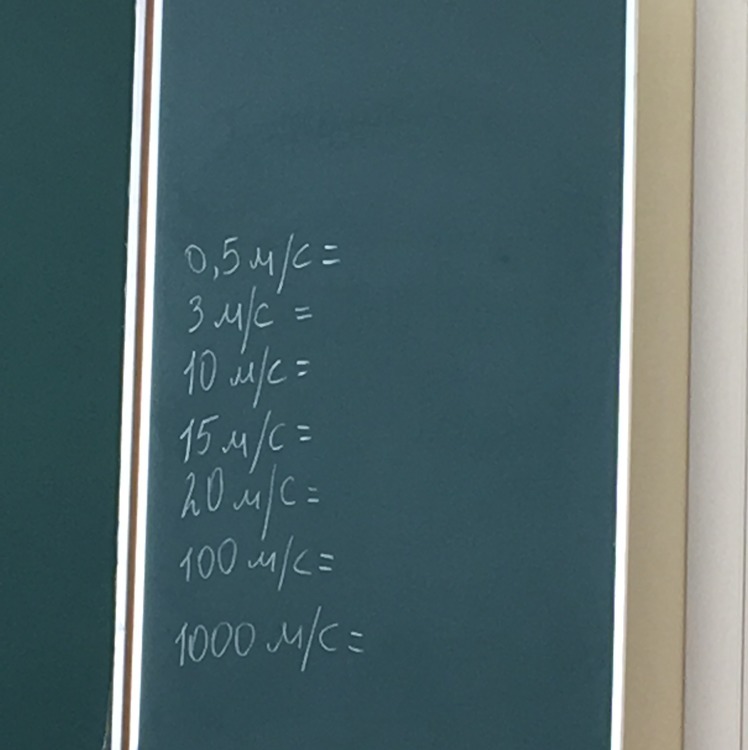 0,5 м/с =
3 м/с =
10 м/с =
15 м/с =
20 м/с =
100 м/с =
1000 м/с =